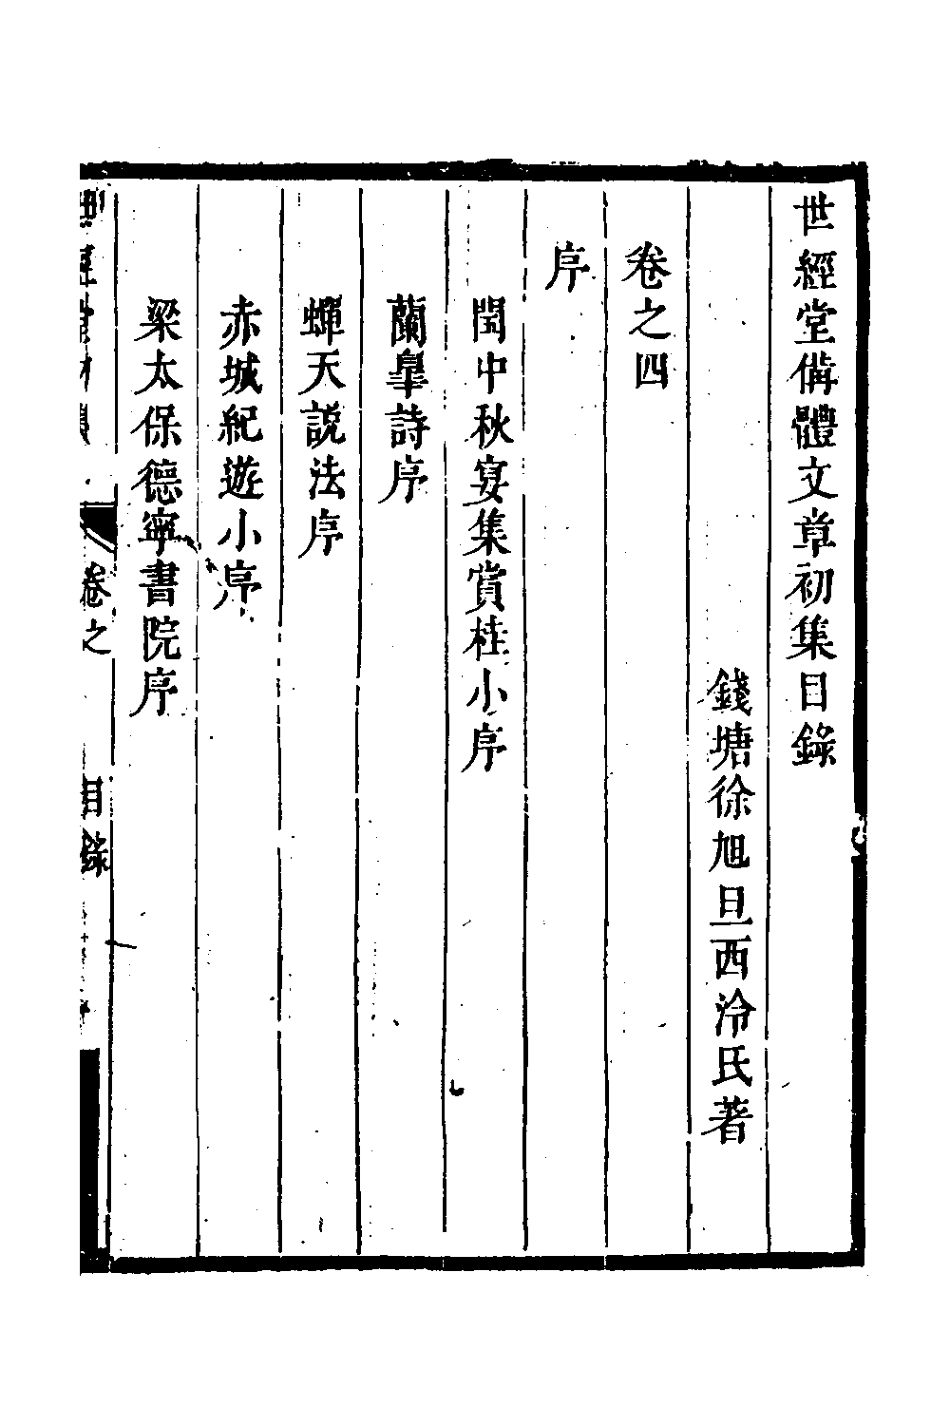 世經堂備體文章初集目錄
錢塘徐旭旦西泠氏著
卷之四
序
閏中秋宴集賞桂小序
蘭皐詩序
蟬天說法序
赤城紀遊小序
梁太保德寧書院序
卷之
目錄